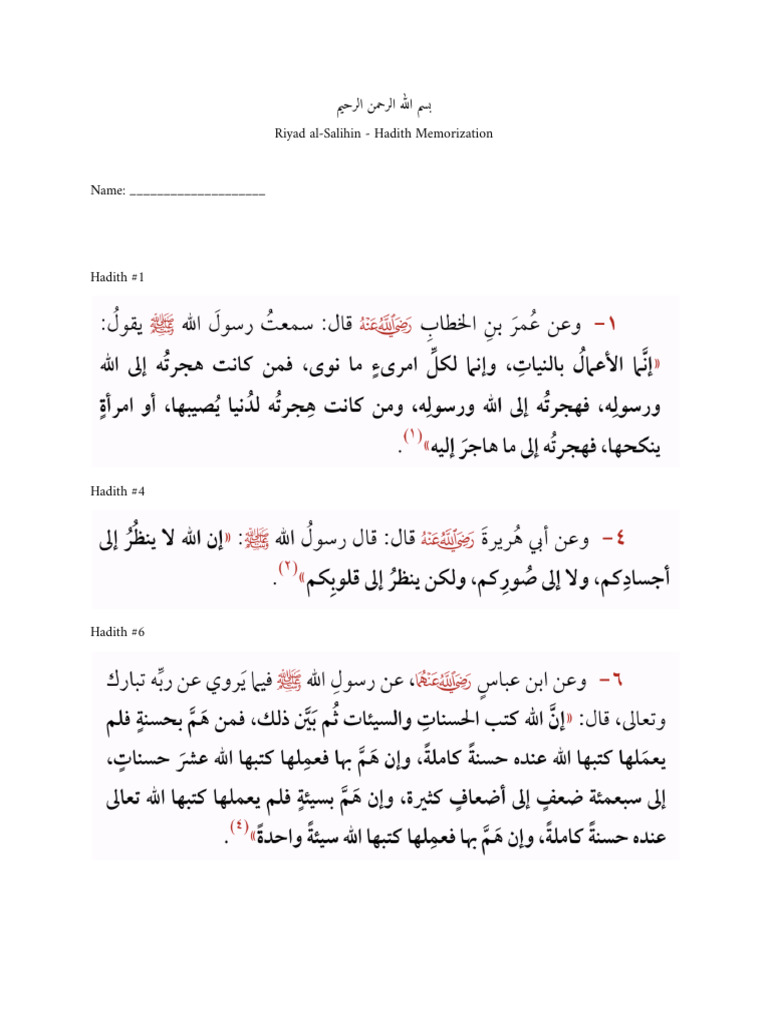 بسم الله الرحمن الرحيم
Riyad al-Salihin - Hadith Memorization
Name: ____________________
Hadith #1
١- وعن عُمرَ بنِ الخطابِ رَضِيَ اللَّهُ عَنْهُ قال: سمعتُ رسولَ الله ﷺ يقولُ:
«إنَّما الأعمالُ بالنياتِ، وإنما لكلِّ امرىءٍ ما نوى، فمن كانت هجرتُه إلى الله
ورسولِه، فهجرتُه إلى الله ورسولِه، ومن كانت هِجرتُه لدُنيا يُصيبها، أو امرأةٍ
ينكحها، فهجرتُه إلى ما هاجرَ إليه»(١).
Hadith #4
٤- وعن أبي هُريرةَ رَضِيَ اللَّهُ عَنْهُ قال: قال رسولُ الله ﷺ: «إن الله لا ينظُرُ إلى
أجسادِكم، ولا إلى صُورِكم، ولكن ينظرُ إلى قلوبِكم»(٢).
Hadith #6
٦- وعن ابن عباسٍ رَضِيَ اللَّهُ عَنْهُمَا، عن رسولِ الله ﷺ فيما يَروي عن ربِّه تبارك
وتعالى، قال: «إنَّ الله كتب الحسناتِ والسيئات ثُم بَيَّن ذلك، فمن هَمَّ بحسنةٍ فلم
يعمَلها كتبها الله عنده حسنةً كاملةً، وإن هَمَّ بها فعمِلها كتبها الله عشرَ حسناتٍ،
إلى سبعمئة ضعفٍ إلى أضعافٍ كثيرة، وإن هَمَّ بسيئةٍ فلم يعملها كتبها الله تعالى
عنده حسنةً كاملةً، وإن هَمَّ بها فعمِلها كتبها الله سيئةً واحدةً»(٤).